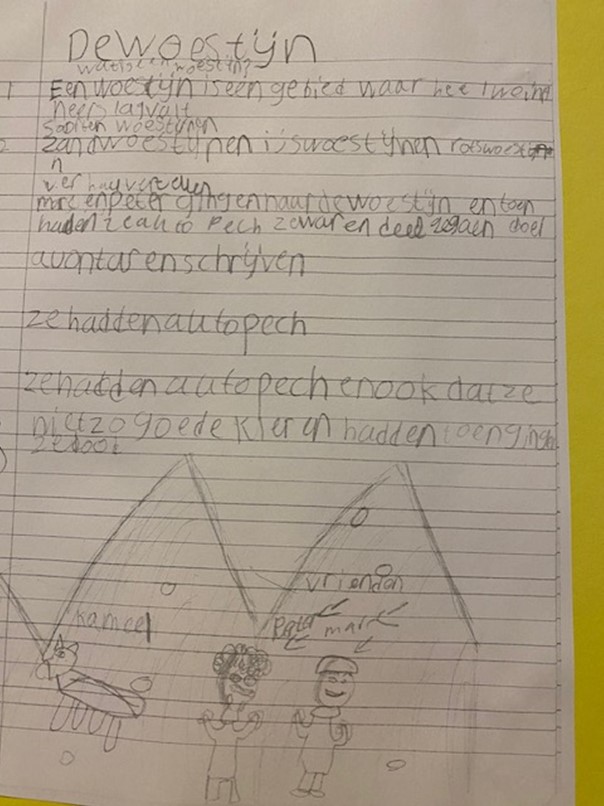 De woestijn
wat is een woestijn?
1 Een woestijn is een gebied waar heel weinig
neerslag valt
soorten woestijnen
2 zandwoestijnen ijswoestijnen rotswoestijn
n
verhaal vertellen
marc en peter gingen naar de woestijn en toen
hadden ze auto pech ze waren deel doel
avontaren schrijven
ze hadden autopech
ze hadden autopech en ook dat ze
niet zo goede kleren hadden toen gingen
ze doot
vrienden
kameel
Peter marc